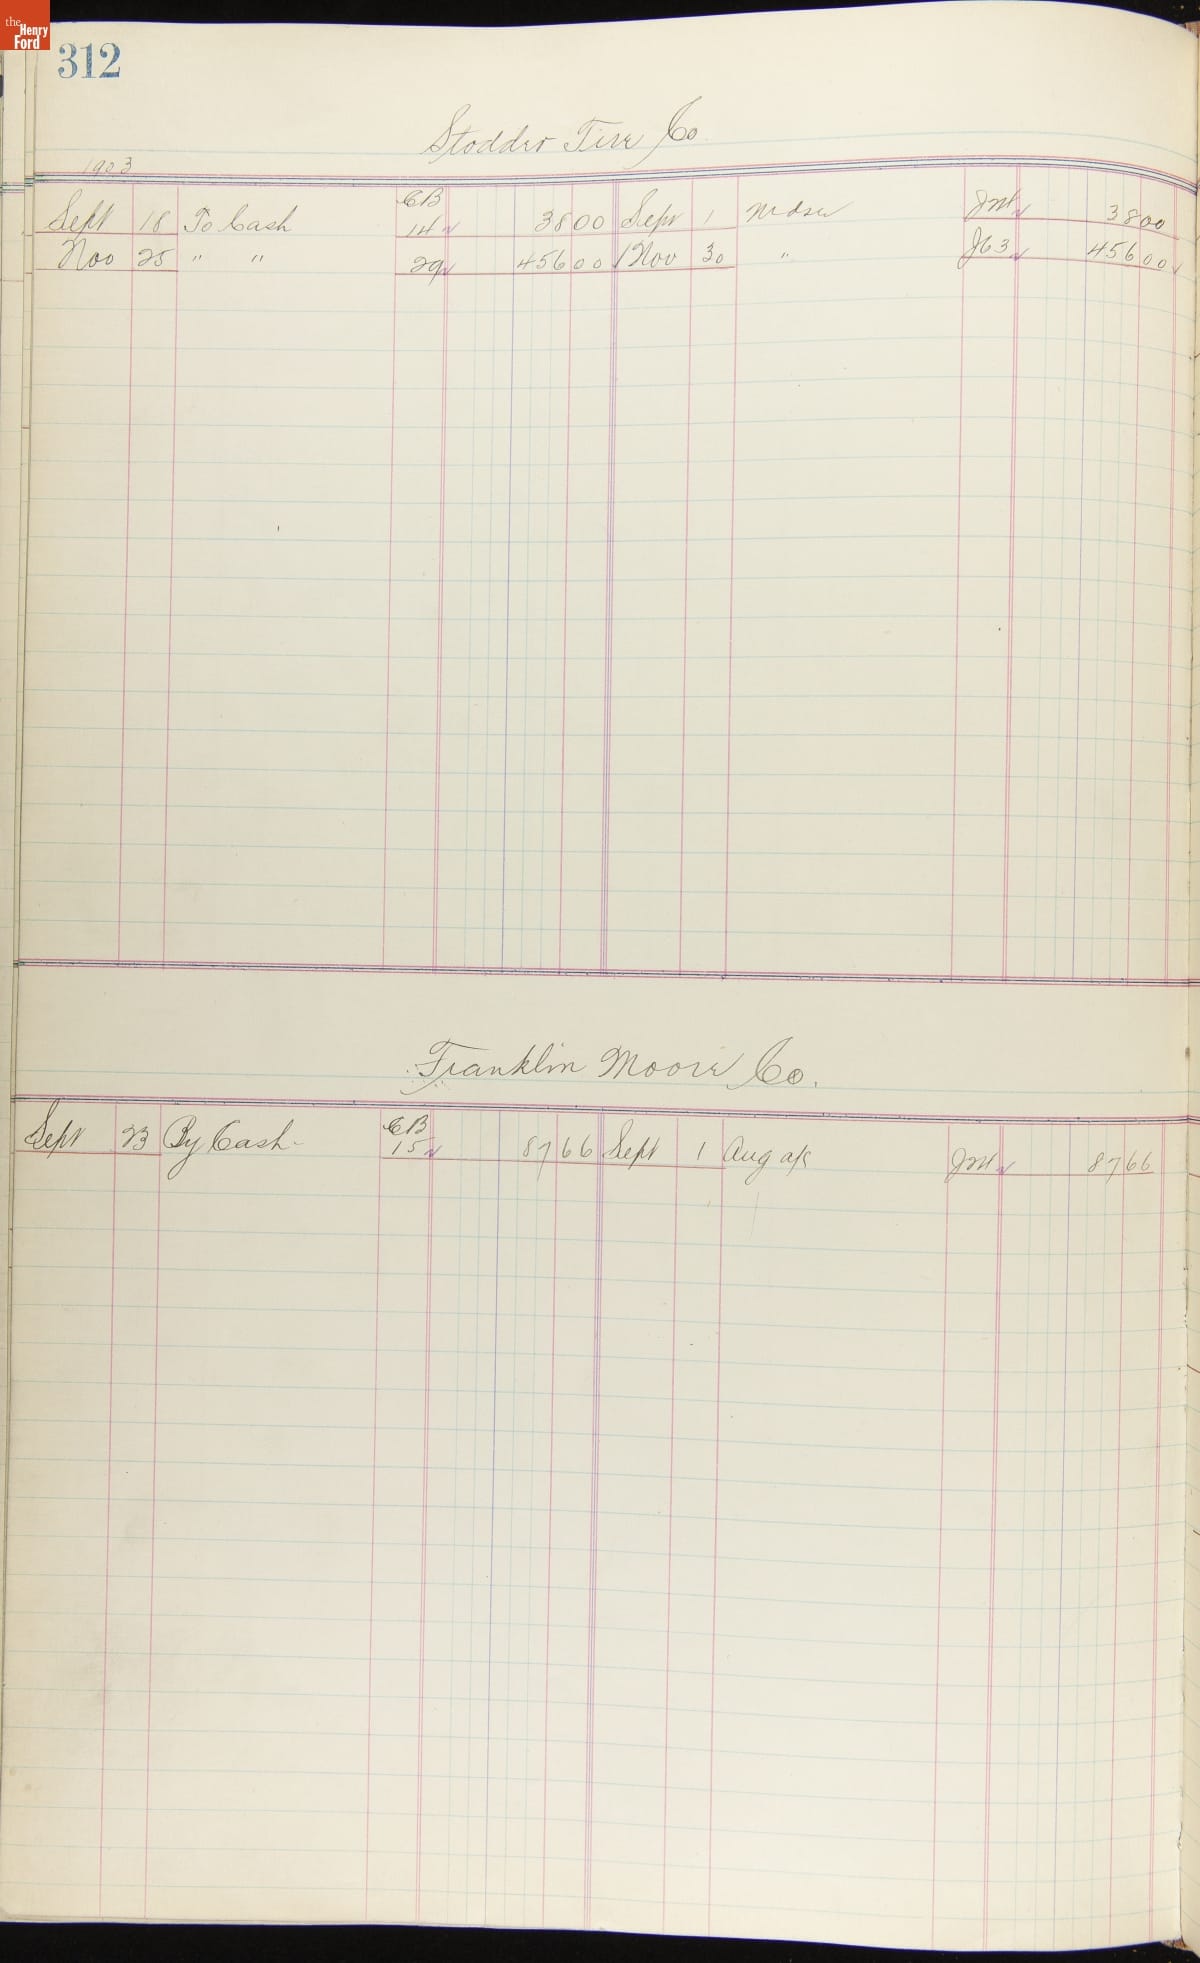 the Henry Ford
312
Stodder Tire Co
1903
Sept 18 To Cash CB 14 38 00 Sept 1 Mdse 38 00
Nov 25 " " 29 456 00 Nov 30 " J63 456 00
Franklin Moore Co.
Sept 23 By Cash CB 15 87 66 Sept 1 Aug a/c 87 66